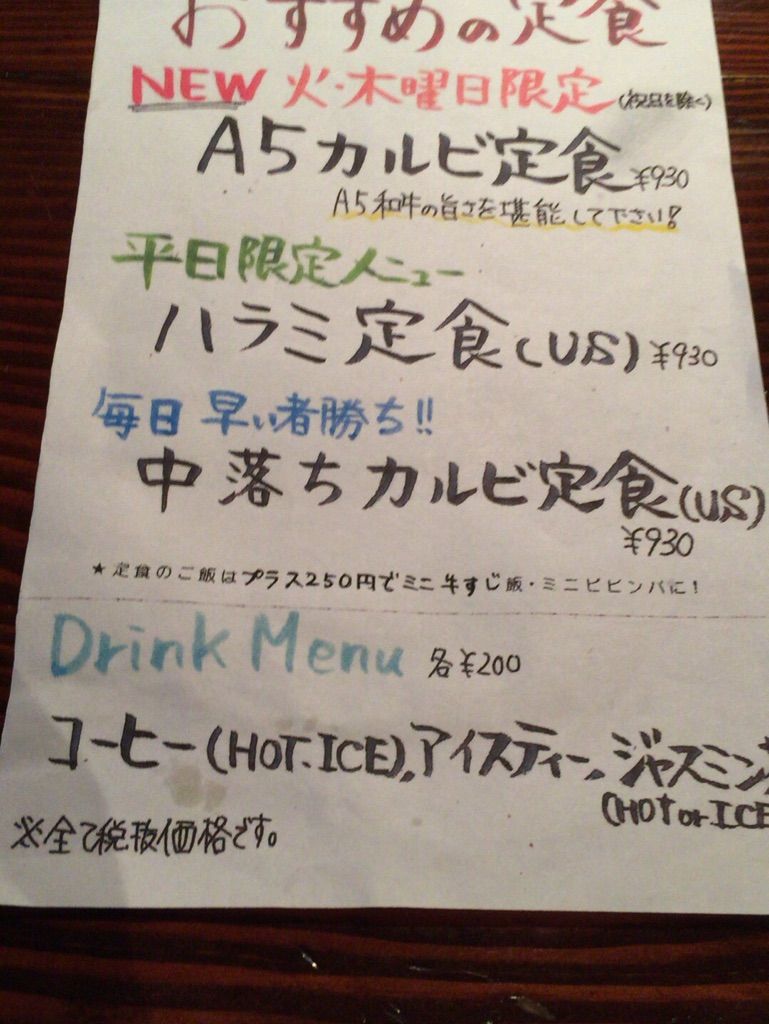 おすすめの定食
NEW 火・木曜日限定(祝日を除く)
A5カルビ定食 ¥930
A5和牛の旨さを堪能して下さい!
平日限定メニュー
ハラミ定食(US) ¥930
毎日 早い者勝ち!!
中落ちカルビ定食(US)
¥930
★定食のご飯はプラス250円でミニ牛すじ飯・ミニビビンバに!
Drink Menu 各¥200
コーヒー(HOT.ICE),アイスティー,ジャスミン
(HOT or ICE
※全て税抜価格です。